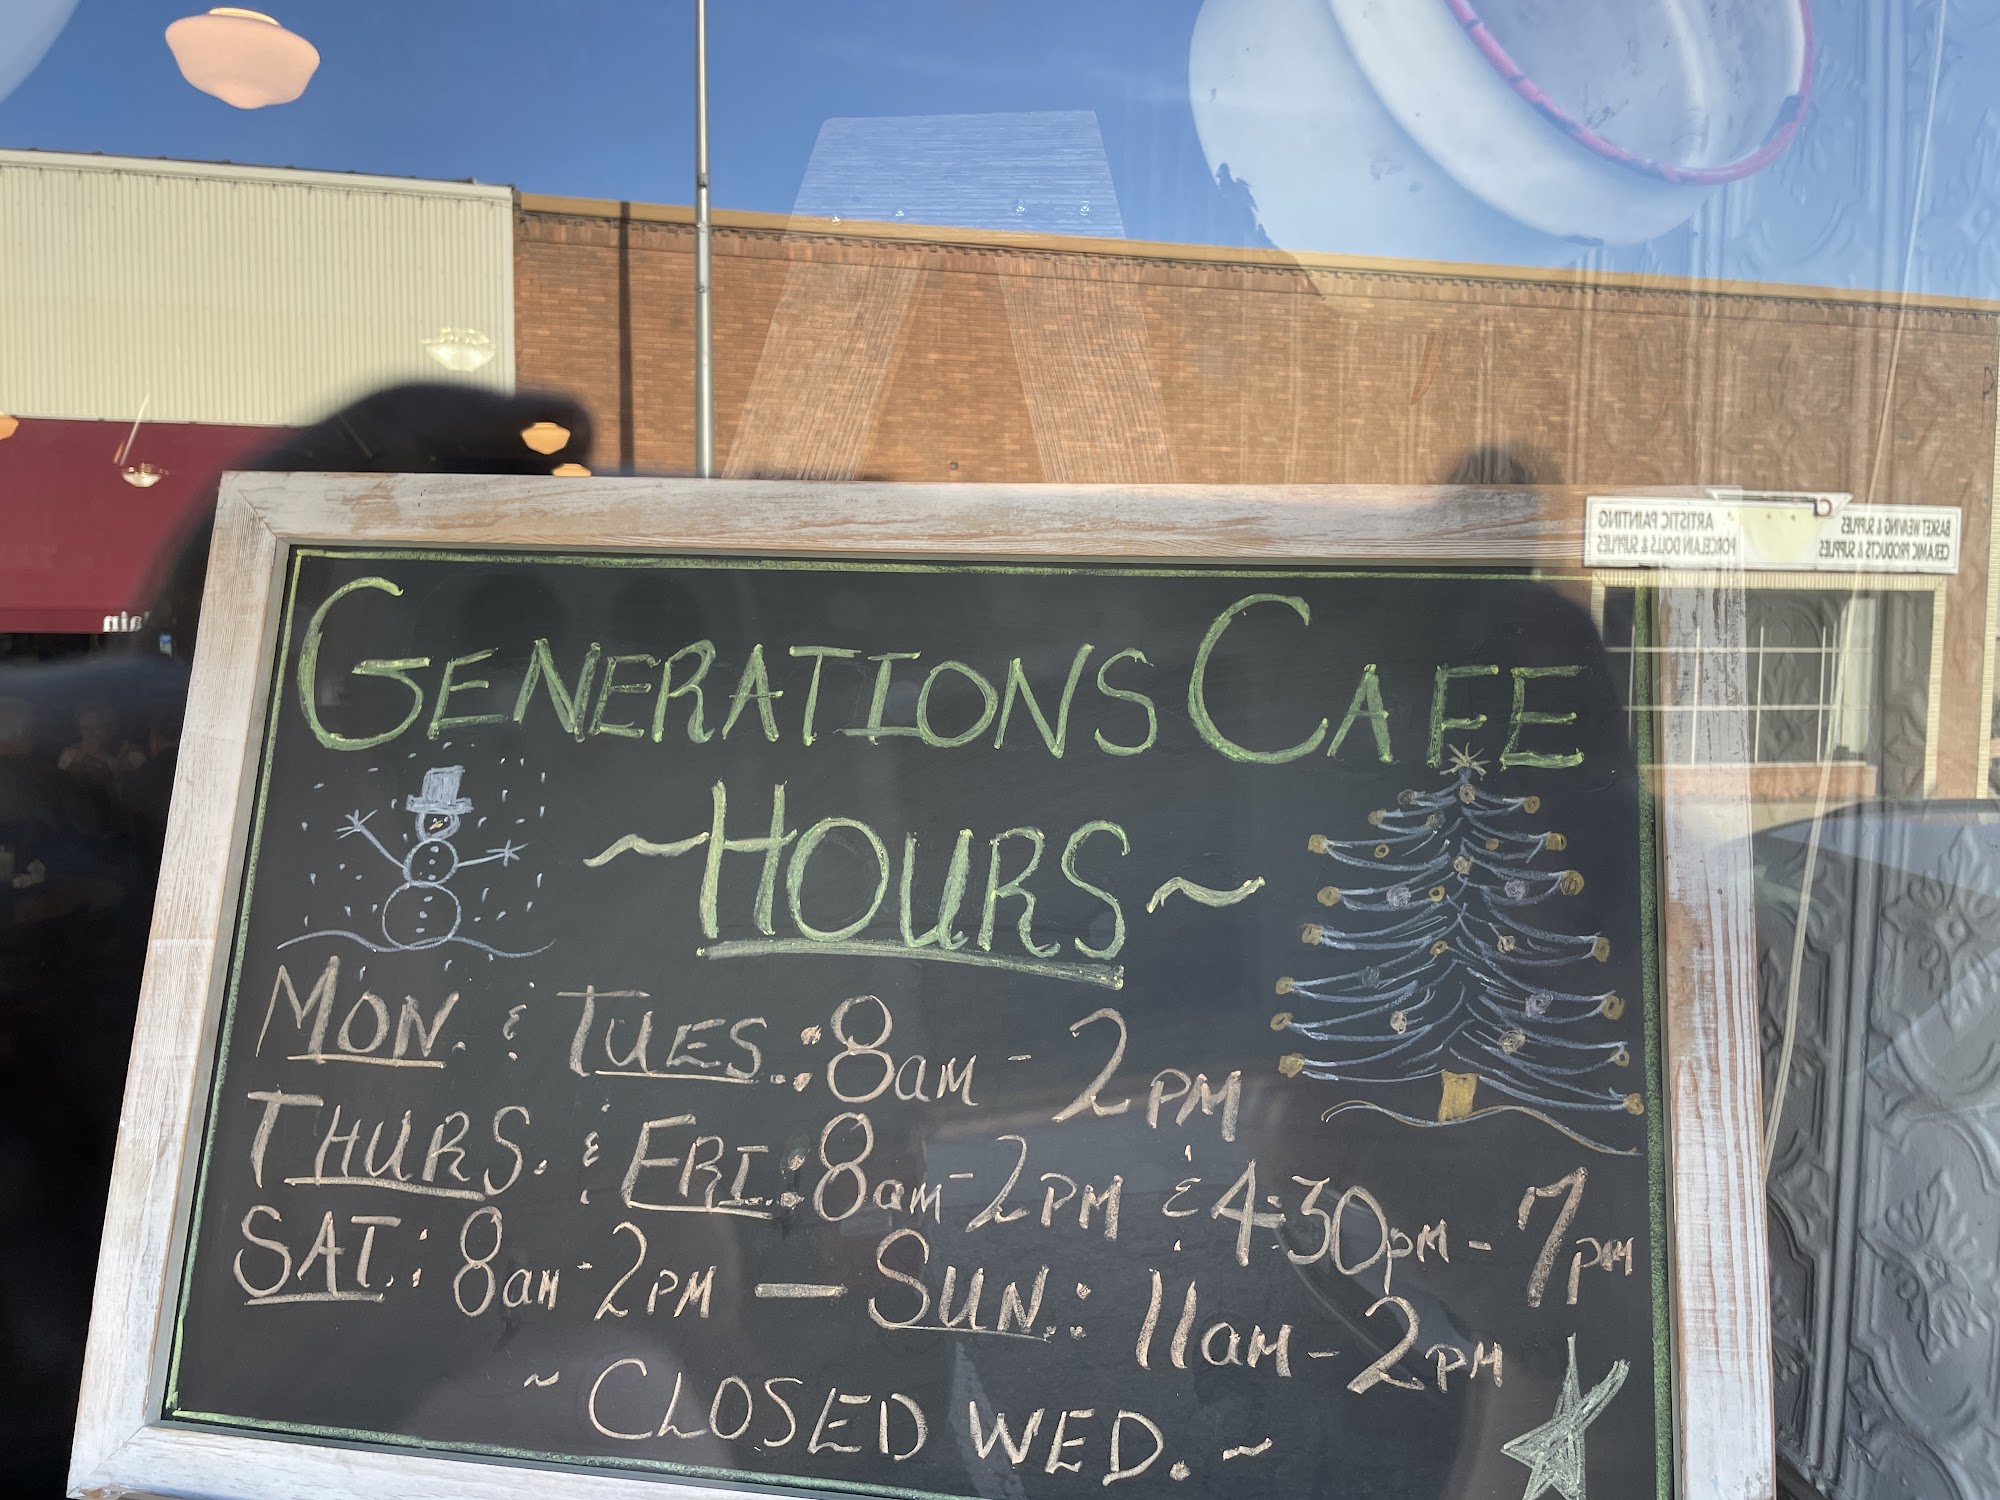 GENERATIONS CAFE
~HOURS~
MON. & TUES.: 8am - 2PM
THURS. & FRI.: 8am - 2PM & 4:30PM - 7PM
SAT.: 8am - 2PM — SUN.: 11am - 2PM
~ CLOSED WED. ~
ARTISTIC PAINTING
PORCELAIN DOLLS & SUPPLIES
BASKET WEAVING & SUPPLIES
CERAMIC PRODUCTS & SUPPLIES